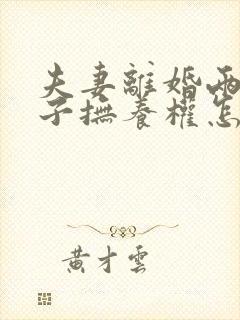 夫妻離婚兩
子撫養權怎
黃才雲